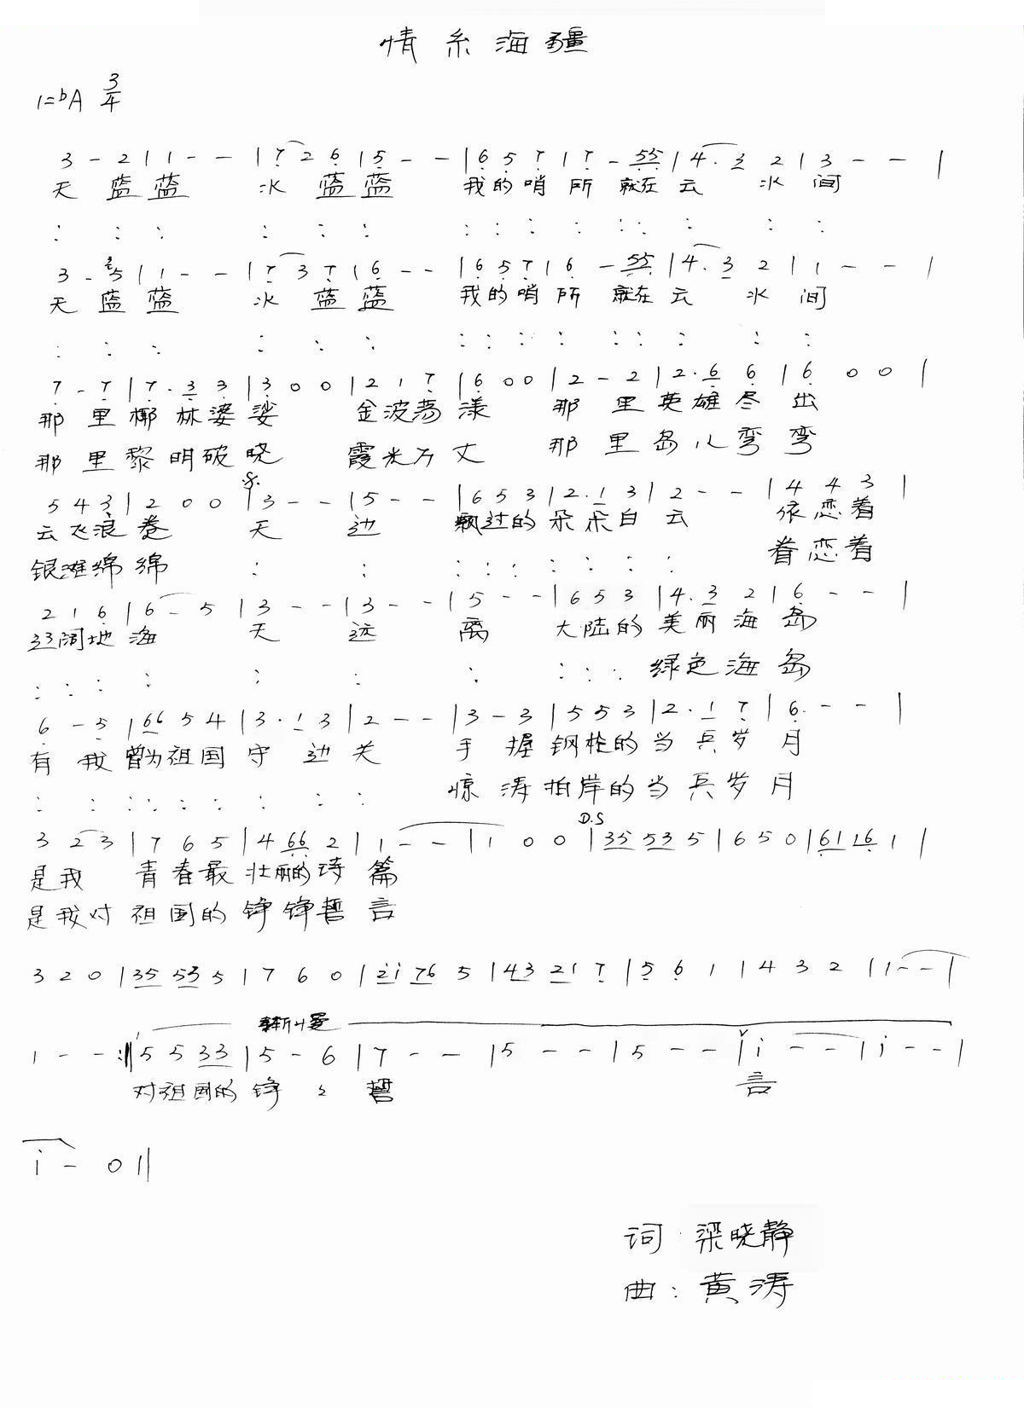 情系海疆
1=♭A 3/4
3 - 2 | 1 - - | 7 2 6 | 5 - - | 6 5 7 | 7 - 55 | 4. 3 2 | 3 - - |
天 蓝 蓝 水 蓝 蓝 我的哨所 就在 云 水 间
3 - 5 | 1 - - | 7 3 7 | 6 - - | 6 5 7 | 6 - 55 | 4. 3 2 | 1 - - |
天 蓝 蓝 水 蓝 蓝 我的哨所 就在 云 水 间
7 - 7 | 7. 3 3 | 3 0 0 | 2 1 7 | 6 0 0 | 2 - 2 | 2. 6 6 | 6 0 0 |
那 里 椰 林 婆 娑 金波荡漾 那 里 英雄尽出
那 里 黎 明 破 晓 霞光万丈 那 里 岛儿弯弯
5 4 3 | 2 0 0 | 3 - - | 5 - - | 6 5 3 | 2. 1 3 | 2 - - | 4 4 3 |
云飞浪卷 天 边 飘过的 朵朵白 云 依恋着
银滩绵绵 眷恋着
2 1 6 | 6 - 5 | 3 - - | 3 - - | 5 - - | 6 5 3 | 4. 3 2 | 6 - - |
辽阔地 海 天 远 离 大陆的 美丽海岛
绿色海岛
6 - 5 | 66 5 4 | 3. 1 3 | 2 - - | 3 - 3 | 5 5 3 | 2. 1 7 | 6 - - |
有 我 曾为祖国 守 边 关 手 握 钢枪的当兵岁月
惊 涛 拍岸的当兵岁月
D.S
3 2 3 | 7 6 5 | 4 66 2 | 1 - - | 1 0 0 | 35 53 5 | 6 5 0 | 61 16 1 |
是我 青春最 壮丽的诗 篇
是我对 祖国的 铮铮誓 言
3 2 0 | 35 53 5 | 7 6 0 | 2i 76 5 | 43 21 7 | 5 6 1 | 4 3 2 | 1 - - |
渐慢
1 - - :‖ 5 5 33 | 5 - 6 | 7 - - | 5 - - | 5 - - | i - - | i - - |
对祖国的 铮 々 誓 言
i - 0 ‖
词 梁晓静
曲：黄涛